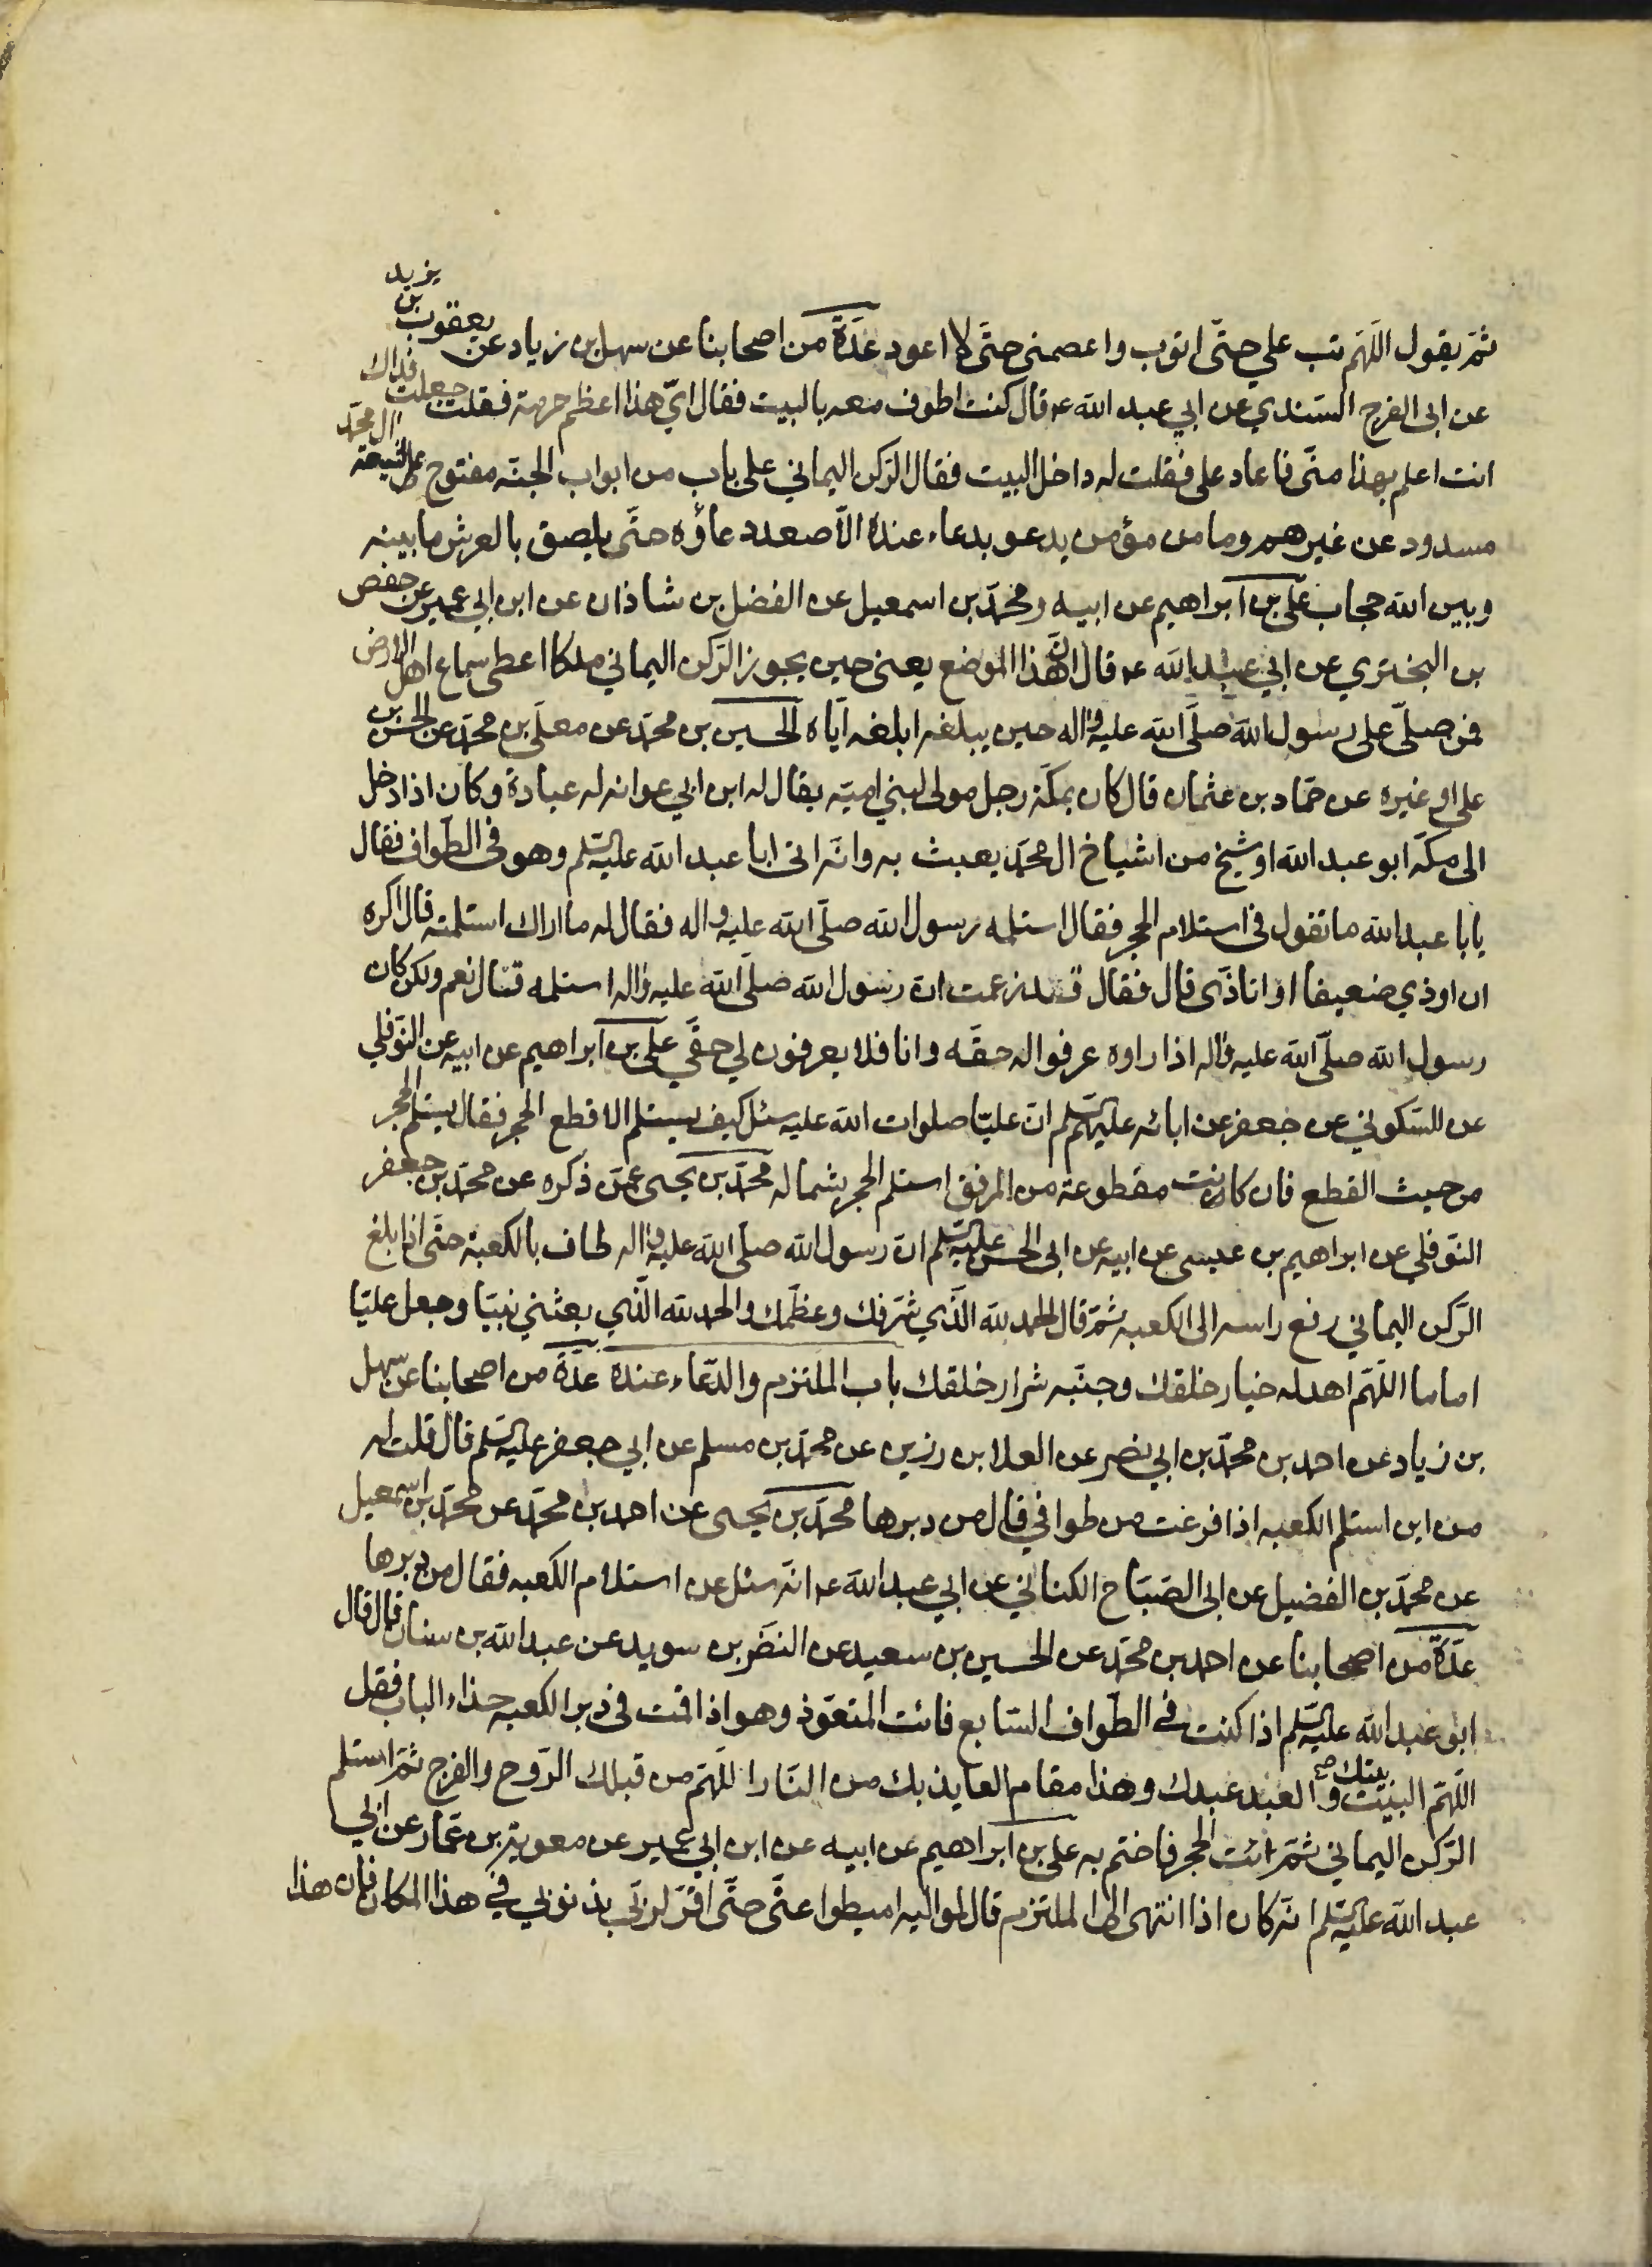 ثمّ يقول اللّهمّ تب علي حتّى اتوب واعصمنى حتّى لا اعود عدّة من اصحابنا عن سهل بن زياد عن يعقوب بن يزيد
عن ابى الفرج السّندي عن ابي عبد الله عم قال كنت اطوف معه بالبيت فقال ايّ هذا اعظم حرمة فقلت جعلت فداك
انت اعلم بهذا منّى فاعاد على فقلت له داخل البيت فقال الرّكن اليماني على باب من ابواب الجنّه مفتوح لشيعة ال محمّد
مسدود عن غيرهم وما من مؤمن يدعو بدعاء عنده الاّ صعد دعاؤه حتّى يلصق بالعرش ما بينه
وبين الله حجاب على بن ابراهيم عن ابيه ومحمّد بن اسمعيل عن الفضل بن شاذان عن ابن ابي عمير عن حفص
بن البختري عن ابي عبد الله عم قال انّ في هذا الموضع يعنى حين يجوز الرّكن اليماني ملكا اعطى سماع اهل الارض
فمن صلّى على رسول الله صلّى الله عليه واله حين يبلغه ابلغه ايّاه الحسين بن محمّد عن معلّى بن محمّد عن الحسن بن
على او غيره عن حمّاد بن عثمان قال كان بمكّة رجل مولى لبنى اميّه يقال له ابن ابي عوانه له عبادة وكان اذا دخل
الى مكّه ابو عبد الله او شيخ من اشياخ ال محمّد يعبث به وانّه اتى ابا عبد الله عليه السّلم وهو فى الطّواف فقال
يابا عبد الله ما تقول فى استلام الحجر فقال استلمه رسول الله صلّى الله عليه واله فقال له ما اراك استلمته قال اكره
ان اوذي ضعيفا او اتاذّى قال فقال قد زعمت انّ رسول الله صلّى الله عليه واله استلمه قال نعم ولكن كان
رسول الله صلّى الله عليه واله اذا راوه عرفوا له حقّه وانا فلا يعرفون لي حقّي على بن ابراهيم عن ابيه عن النّوفلي
عن السّكوني عن جعفر عن ابائه عليهم السّلم انّ عليّا صلوات الله عليه سئل كيف يستلم الاقطع الحجر فقال يستلم الحجر
من حيث القطع فان كانت مقطوعة من المرفق استلم الحجر بشماله محمّد بن يحيى عمّن ذكره عن محمّد بن جعفر
النّوفلي عن ابراهيم بن عيسى عن ابيه عن ابى الحسن عليه السّلم انّ رسول الله صلّى الله عليه واله طاف بالكعبة حتّى اذا بلغ
الرّكن اليماني رفع راسه الى الكعبه ثمّ قال الحمد لله الّذي شرّفك وعظّمك والحمد لله الّذي بعثني نبيّا وجعل عليّا
اماما اللّهمّ اهد له خيار خلقك وجنّبه شرار خلقك باب الملتزم والدّعاء عنده عدّة من اصحابنا عن سهل
بن زياد عن احمد بن محمّد بن ابي نصر عن العلا بن رزين عن محمّد بن مسلم عن ابي جعفر عليه السّلم قال قلت له
من اين استلم الكعبه اذا فرغت من طوافي قال من دبرها محمّد بن يحيى عن احمد بن محمّد عن محمّد بن اسمعيل
عن محمّد بن الفضيل عن ابى الصّبّاح الكناني عن ابي عبد الله عم انّه سئل عن استلام الكعبه فقال من دبرها
عدّة من اصحابنا عن احمد بن محمّد عن الحسين بن سعيد عن النضر بن سويد عن عبد الله بن سنان قال قال
ابو عبد الله عليه السّلم اذا كنت في الطّواف السّابع فائت المتعوّذ وهو اذا قمت في دبر الكعبه حذاء الباب فقل
اللّهمّ البيت بيتك والعبد عبدك وهذا مقام العايذ بك من النّار اللّهمّ من قبلك الرّوح والفرج ثمّ استلم
الرّكن اليماني ثمّ ائت الحجر فاختم به على بن ابراهيم عن ابيه عن ابن ابي عمير عن معوية بن عمّار عن ابي
عبد الله عليه السّلم انّه كان اذا انتهى الى الملتزم قال لمواليه اميطوا عنّى حتّى اقرّ لربّى بذنوبي في هذا المكان فان هذا